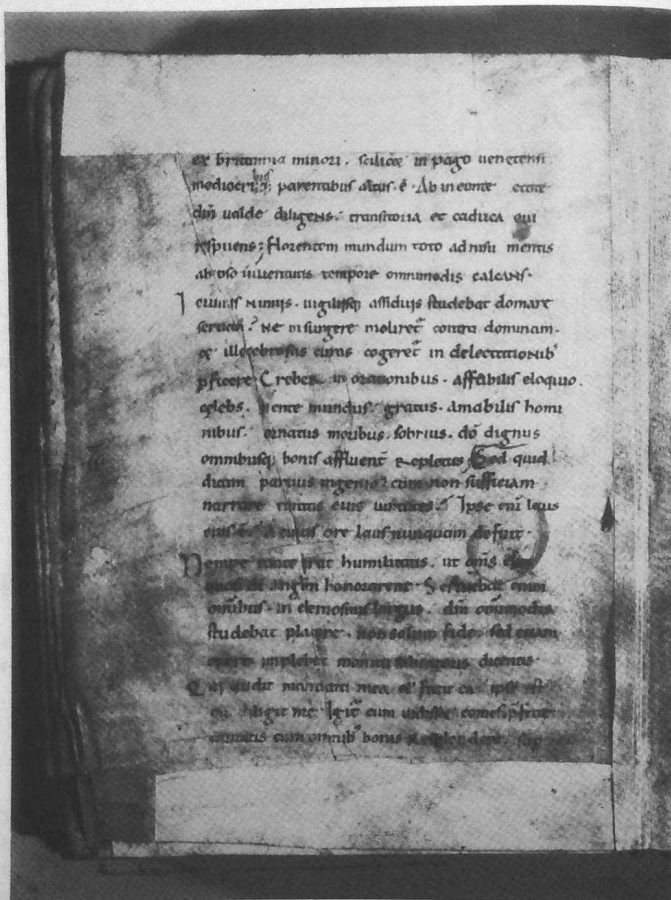 ex britannia minori. scilicet in pago uenetensi
mediocribus parentibus altus ē. Ab ineunte etate
dm̄ ualde diligens. transitoria et caduca qui
respuens; Florentem mundum toto adnisu mentis
ab ipso iuuentutis tempore omnimodis calcans.
Ieiuniis nimis. uigiliisq; assiduis studebat domare
seruam. Ne insurgere moliret̄ contra dominam.
illecebrosas curas cogeret̄ in delectationib;
ꝑficere. Creber in orationibus. affabilis eloquio.
celebs. mente mundus. gratus. amabilis homi
nibus. ornatus moribus. sobrius. dō dignus
omnibusq; bonis affluent̄ repletus. Sed quid
dicam paruus ingenio? cum non sufficiam
narrare eius uirtutes. Ipse eni laus
eius ē. A cuius ore laus nunquam defuit.
Nempe tante erat humilitatis. ut om̄s
quasi di angl̄m honorarent. Satagebat enim
om̄ibus. in elemosinis largus. dm̄ omnimodis
studebat placare. non solum fide. sed etiam
opere implebat monita dicentis.
Qui audit mandata mea et facit ea ipse est
qui diligit me. Igit̄ cum uidisset comes
cum omnib; bonis